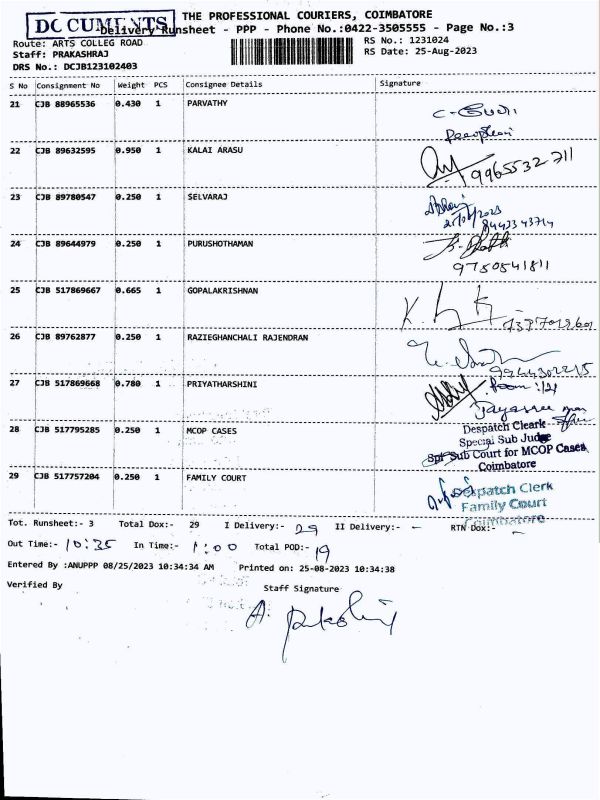 DOCUMENTS
THE PROFESSIONAL COURIERS, COIMBATORE
Delivery Runsheet - PPP - Phone No.:0422-3505555 - Page No.:3
Route: ARTS COLLEG ROAD
Staff: PRAKASHRAJ
DRS No.: DCJB123102403
RS No.: 1231024
RS Date: 25-Aug-2023
S No Consignment No Weight PCS Consignee Details Signature
21 CJB 88965536 0.430 1 PARVATHY
22 CJB 89632595 0.950 1 KALAI ARASU
9965532711
23 CJB 89780547 0.250 1 SELVARAJ
8443343714
24 CJB 89644979 0.250 1 PURUSHOTHAMAN
9750541811
25 CJB 517869667 0.665 1 GOPALAKRISHNAN
26 CJB 89762877 0.250 1 RAZIEGHANCHALI RAJENDRAN
9944302215
27 CJB 517869668 0.780 1 PRIYATHARSHINI
Room :121
28 CJB 517795285 0.250 1 MCOP CASES
Despatch Cleark
Special Sub Judge
Spl Sub Court for MCOP Cases
Coimbatore
29 CJB 517757204 0.250 1 FAMILY COURT
Despatch Clerk
Family Court
Coimbatore
Tot. Runsheet:- 3 Total Dox:- 29 I Delivery:- 29 II Delivery:- - RTN Dox:- -
Out Time:- 10:35 In Time:- 1:00 Total POD:- 19
Entered By :ANUPPP 08/25/2023 10:34:34 AM Printed on: 25-08-2023 10:34:38
Verified By Staff Signature